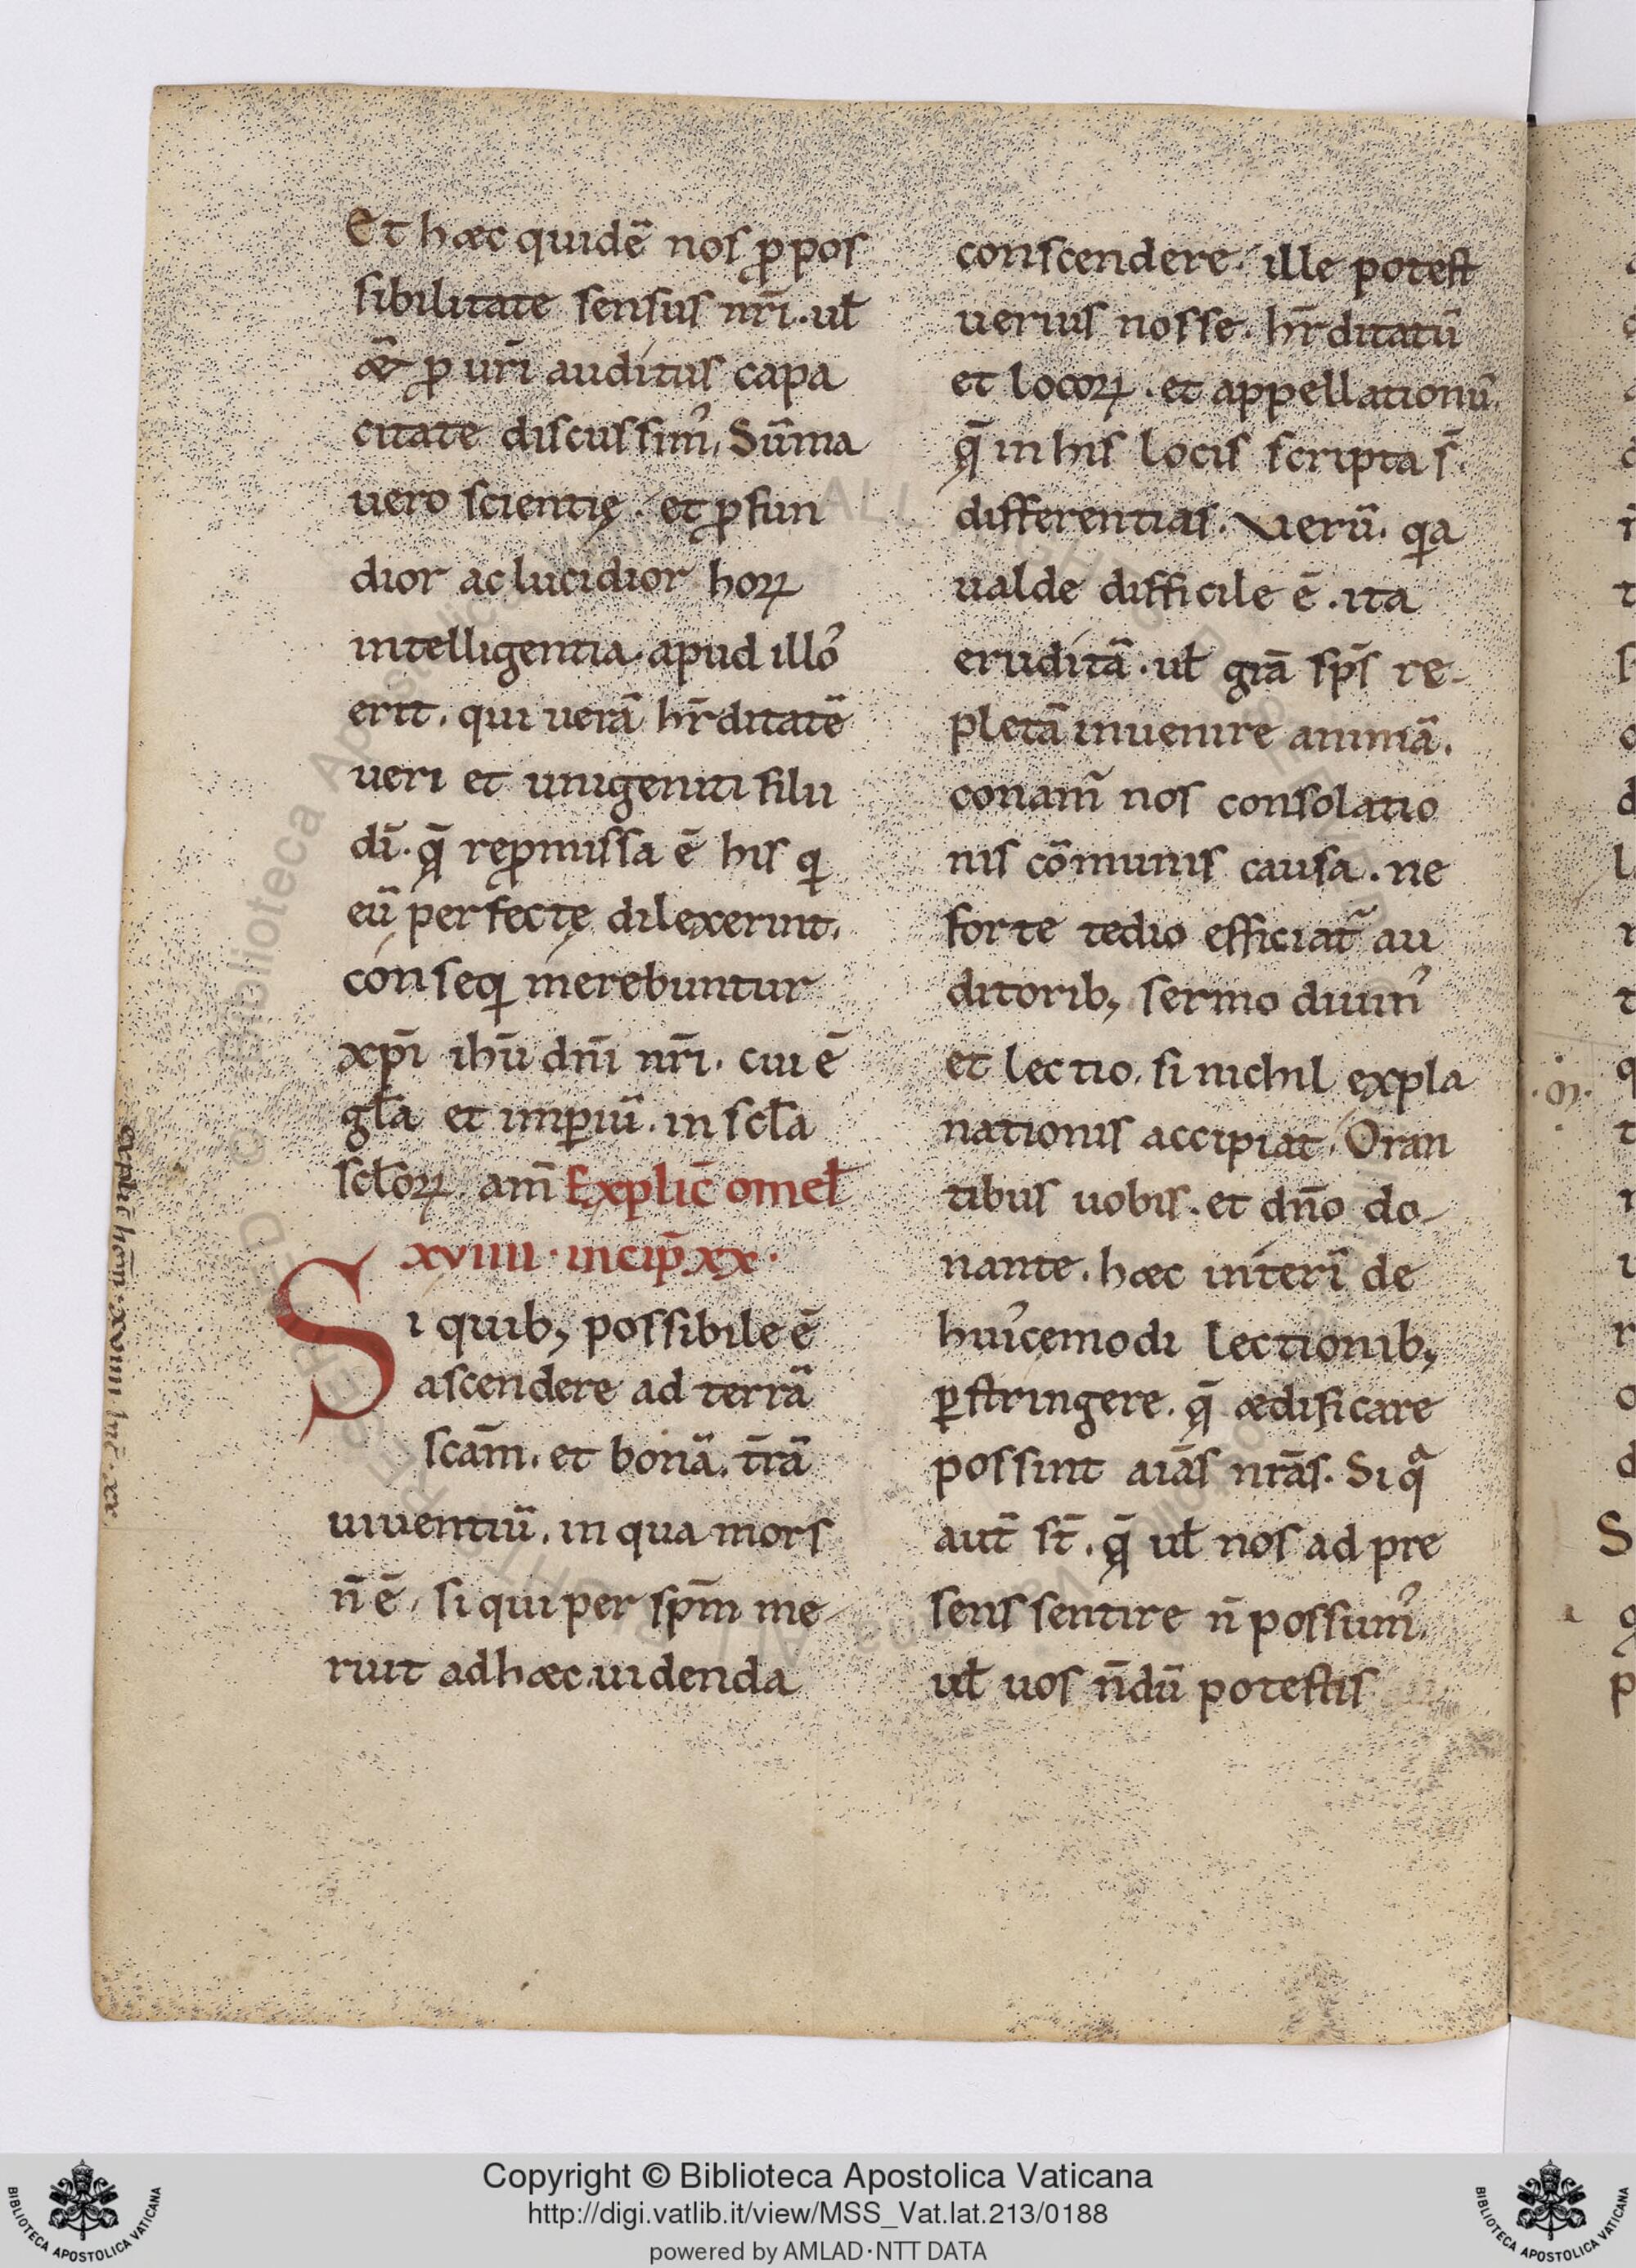 Et hæc quidē nos ꝓpos
sibilitate sensus nr̄i. ul̄
&̄ ꝓ ur̄i auditus capa
citate discussimꝰ. Sūma
uero scientię. et ꝓfun
dior ac lucidior hoꝝ
intelligentia. apud illoꝰ
erit. qui uerā hr̄ditatē
ueri et unigeniti filii
dī. q̄ reꝓmissa ē his qi
eū perfecte dilexerint.
conseqi merebuntur
xp̄i ihū dn̄i nr̄i. cui ē
gl̄a et imꝑiū. in scl̄a
scl̄oꝝ. am̄ Explic̄ omel̄
xviiii. incip̄ xx.
Si quib; possibile ē
ascendere ad terrā
scām. et bonā. tr̄ā
uiuentiū. in qua mors
n̄ ē. si qui per sp̄m me
ruit ad hæc uidenda
conscendere. ille potest
uerius nosse. hr̄ditatū
et locoꝝ. et appellationū.
q̄ in his locis scripta s̄.
differentias. Verū. qia
ualde difficile ē. ita
eruditā. ul̄ grā sp̄s re-
pletā inuenire animā.
conam̄ nos consolatio
nis cōmunis causa. ne
forte tedio efficiat̄ au
ditorib; sermo diuinꝰ
et lectio. si nichil expla
nationis accipiat. Oran
tibus uobis. et dn̄o do-
nante. hæc interī de
huiꝰcemodi lectionib;
ꝑstringere. q̄ ædificare
possint aīas nr̄as. Si qa
aut̄ st̄. q̄ ul̄ nos ad pre
sens sentire n̄ possumꝰ.
ul̄ uos n̄dū potestis
explic̄ hom̄. xviiii inc̄. xx.
Copyright © Biblioteca Apostolica Vaticana
http://digi.vatlib.it/view/MSS_Vat.lat.213/0188
powered by AMLAD·NTT DATA
BIBLIOTECA APOSTOLICA VATICANA
BIBLIOTECA APOSTOLICA VATICANA